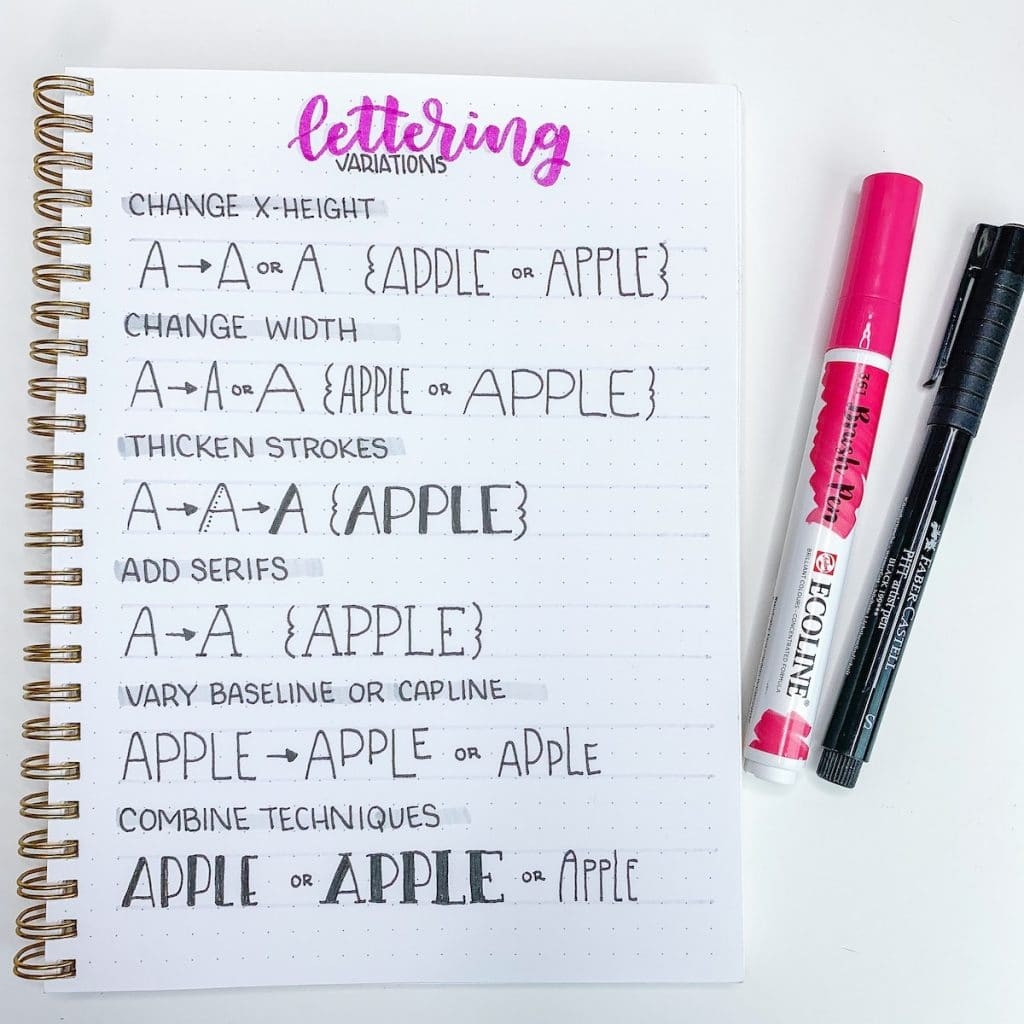 lettering
VARIATIONS
CHANGE X-HEIGHT
A → A OR A {APPLE OR APPLE}
CHANGE WIDTH
A → A OR A {APPLE OR APPLE}
THICKEN STROKES
A → A → A {APPLE}
ADD SERIFS
A → A {APPLE}
VARY BASELINE OR CAPLINE
APPLE → APPLE OR APPLE
COMBINE TECHNIQUES
APPLE OR APPLE OR APPLE
361 Brush Pen
ECOLINE®
BRILLIANT COLOURS - CONCENTRATED FORMULA
FABER-CASTELL
PITT artist pen
BLACK 199***
S